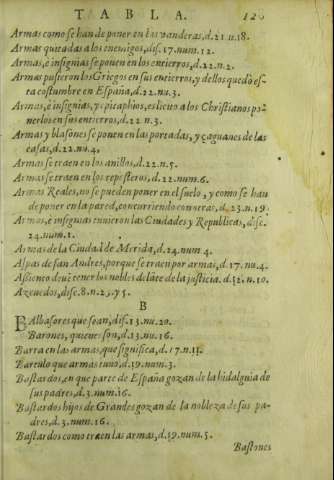 TABLA. 126
Armas como se han de poner en las vanderas, d.21 n.18.
Armas quitadas a los enemigos, dis.17.num.12.
Armas, è insignias se ponen en los entierros, d.22.n.2.
Armas pusieron los Griegos en sus entierros, y dellos quedò es-
ta costumbre en España, d.22.nu.3.
Armas, è insignias, y epitaphios, es licito a los Christianos po-
nerlos en sus entierros, d.22 n.3.
Armas y blasones se ponen en las portadas, y çaguanes de las
casas, d.22.nu.4.
Armas se traen en los anillos, d.22.n.5.
Armas se traen en los reposteros, d.22.num.6.
Armas Reales, no se pueden poner en el suelo, y como se han
de poner en la pared, concurriendo con otras, d.23.n.19.
Armas, è insignias tuuieron las Ciudades y Republicas, disc.
24.num.1.
Armas de la Ciudad de Merida, d.24.num.4.
Aspas de san Andres, porque se traen por armas, d.17.nu.4.
Assiento deuè tener los nobles delāte de la justicia. d.12.n.10.
Azeuedos, disc.8.n.2, y 5.
B
BAlbasores que sean, dis.13.nu.20.
Barones, quienes son, d.13.nu.16.
Barra en las armas, que significa, d.17.n.11.
Bartulo que armas tuuo, d.19.num.3.
Bastardos, en que parte de España gozan de la hidalguia de
sus padres, d.3.num.16.
Bastardos hijos de Grandes gozan de la nobleza de sus pa-
dres, d.3.num.16.
Bastardos como traen las armas, d.19.num.5.
Bastones